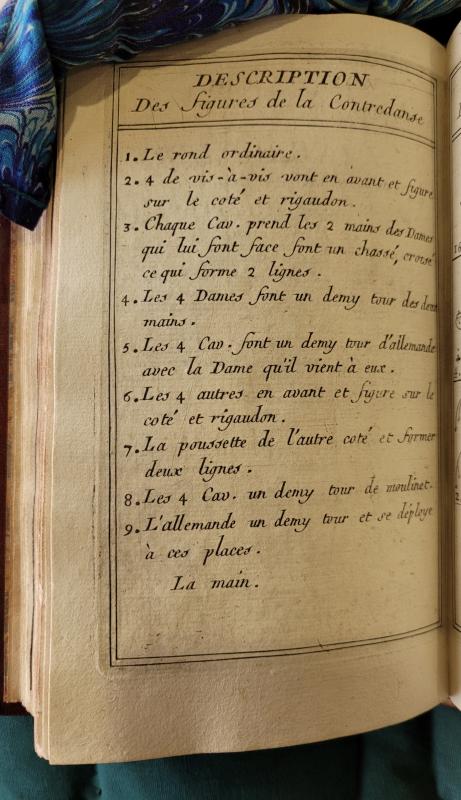 DESCRIPTION
Des figures de la Contredanse
1. Le rond ordinaire.
2. 4 de vis-à-vis vont en avant et figure
sur le coté et rigaudon.
3. Chaque Cav. prend les 2 mains des Dames
qui lui font face font un chassé, croisé
ce qui forme 2 lignes.
4. Les 4 Dames font un demy tour des deux
mains.
5. Les 4 Cav. font un demy tour d'allemande
avec la Dame qu'il vient à eux.
6. Les 4 autres en avant et figure sur le
coté et rigaudon.
7. La poussette de l'autre coté et former
deux lignes.
8. Les 4 Cav. un demy tour de moulinet.
9. L'allemande un demy tour et se deploye
à ces places.
La main.